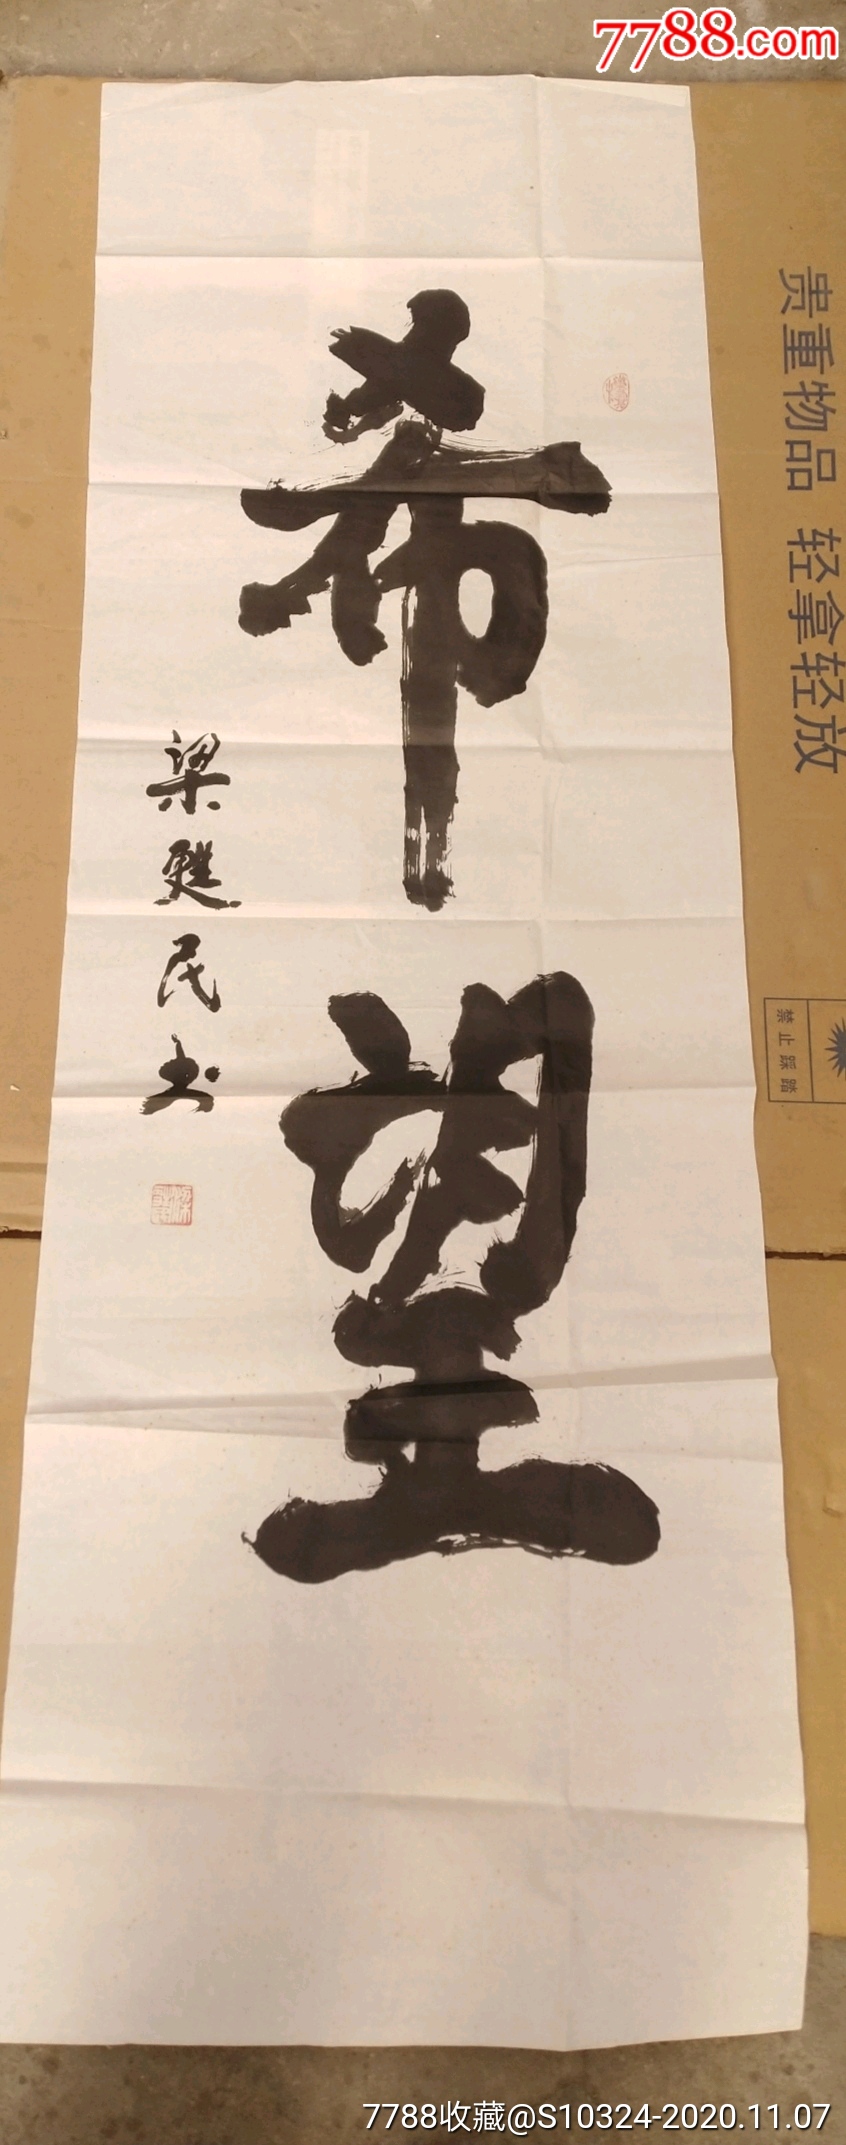 7788.com
希望
梁
民书
贵重物品 轻拿轻放
禁止踩踏
7788收藏@S10324-2020.11.07